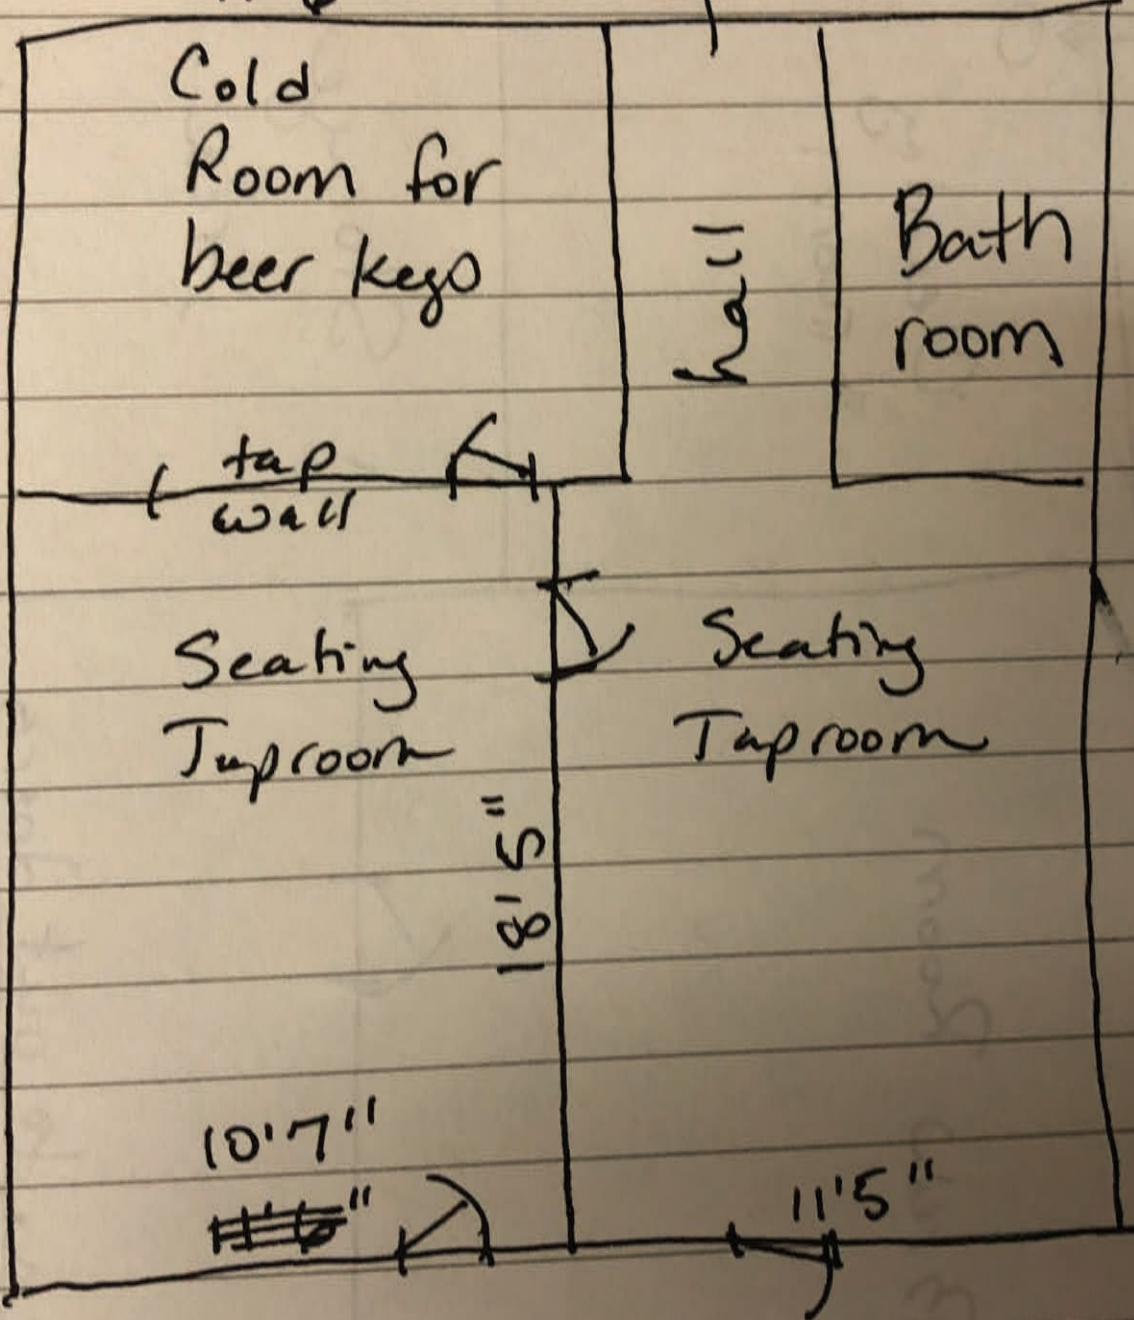 Cold
Room for
beer kegs
hall
Bath
room
tap
wall
Seating
Taproom
Seating
Taproom
18'5"
10'7"
11'5"